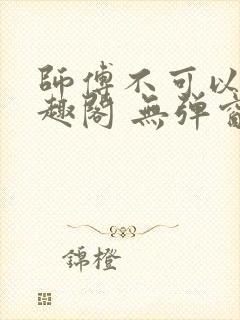 師傅不可以
趣閣 無弹
錦橙